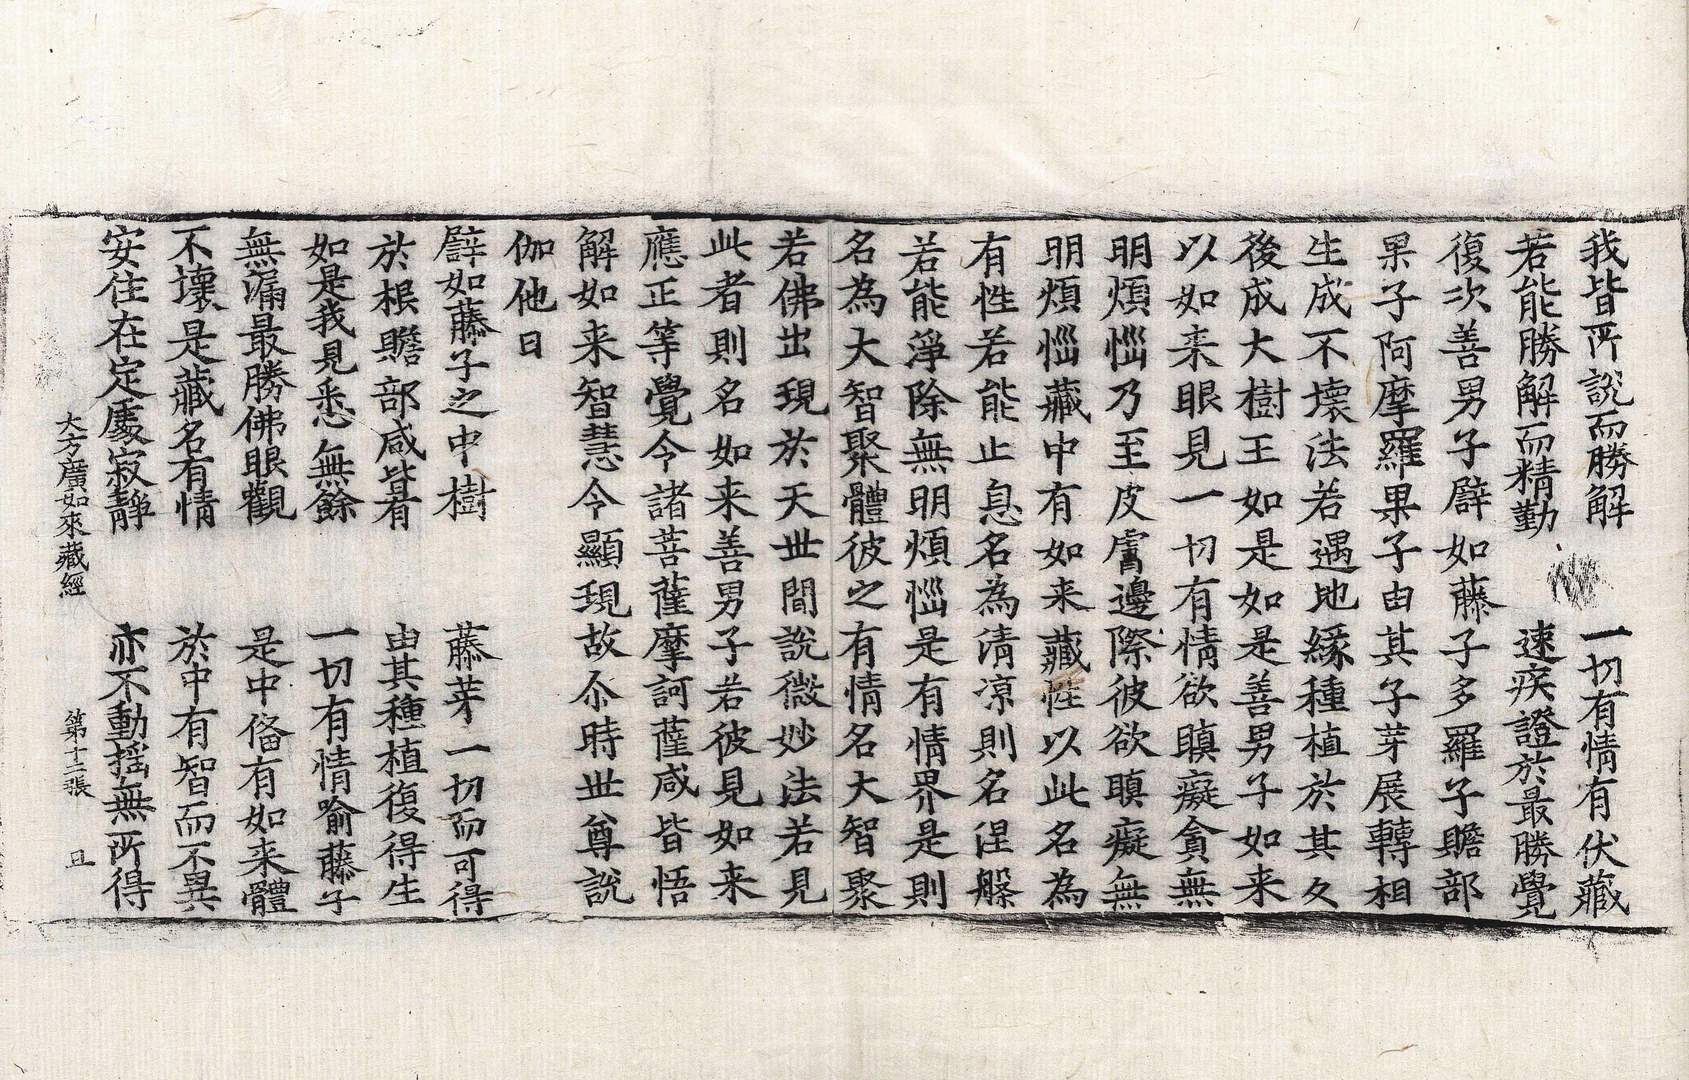 我皆所說而勝解　一切有情有伏藏
若能勝解而精勤　速疾證於最勝覺
復次善男子譬如藤子多羅子贍部
果子阿摩羅果子由其子芽展轉相
生成不壞法若遇地緣種植於其久
後成大樹王如是如是善男子如来
以如来眼見一切有情欲瞋癡貪無
明煩惱乃至皮膚邊際彼欲瞋癡無
明煩惱藏中有如来藏性以此名為
有性若能止息名為清涼則名涅槃
若能淨除無明煩惱是有情界是則
名為大智聚體彼之有情名大智聚
若佛出現於天世間說微妙法若見
此者則名如来善男子若彼見如来
應正等覺令諸菩薩摩訶薩咸皆悟
解如来智慧令顯現故尒時世尊說
伽他曰
譬如藤子之中樹　藤芽一切而可得
於根贍部咸皆有　由其種植復得生
如是我見悉無餘　一切有情喻藤子
無漏最勝佛眼觀　是中俻有如来體
不壞是藏名有情　於中有智而不異
安住在定處寂靜　亦不動搖無所得
大方廣如來藏經　第十二張